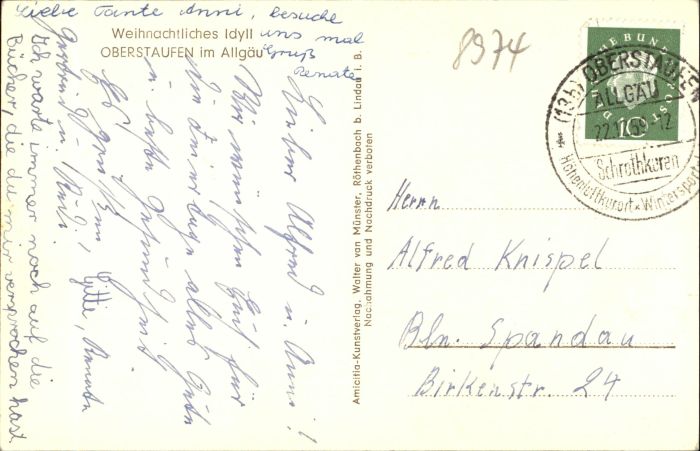 Liebe Tante Anni, besuche
uns mal
Gruß
Renate
Weihnachtliches Idyll
OBERSTAUFEN im Allgäu
8974
DEUTSCHE BUNDESPOST
10
(13b) OBERSTAUFEN
ALLGÄU
59-12
Schrothkuren
Höhenluftkurort × Wintersport
Lieber Alfred u. Anni!
Wir wünschen Euch für
die Feiertage alles Gute
u. beste Gesundheit
Es grüßen
Gitti, Renate
Ich warte immer noch auf die
Bücher, die du mir versprochen hast
Amicitia-Kunstverlag. Walter van Münster, Röthenbach b. Lindau i. B.
Nachahmung und Nachdruck verboten
Herrn
Alfred Knispel
Bln. Spandau
Birkenstr. 24